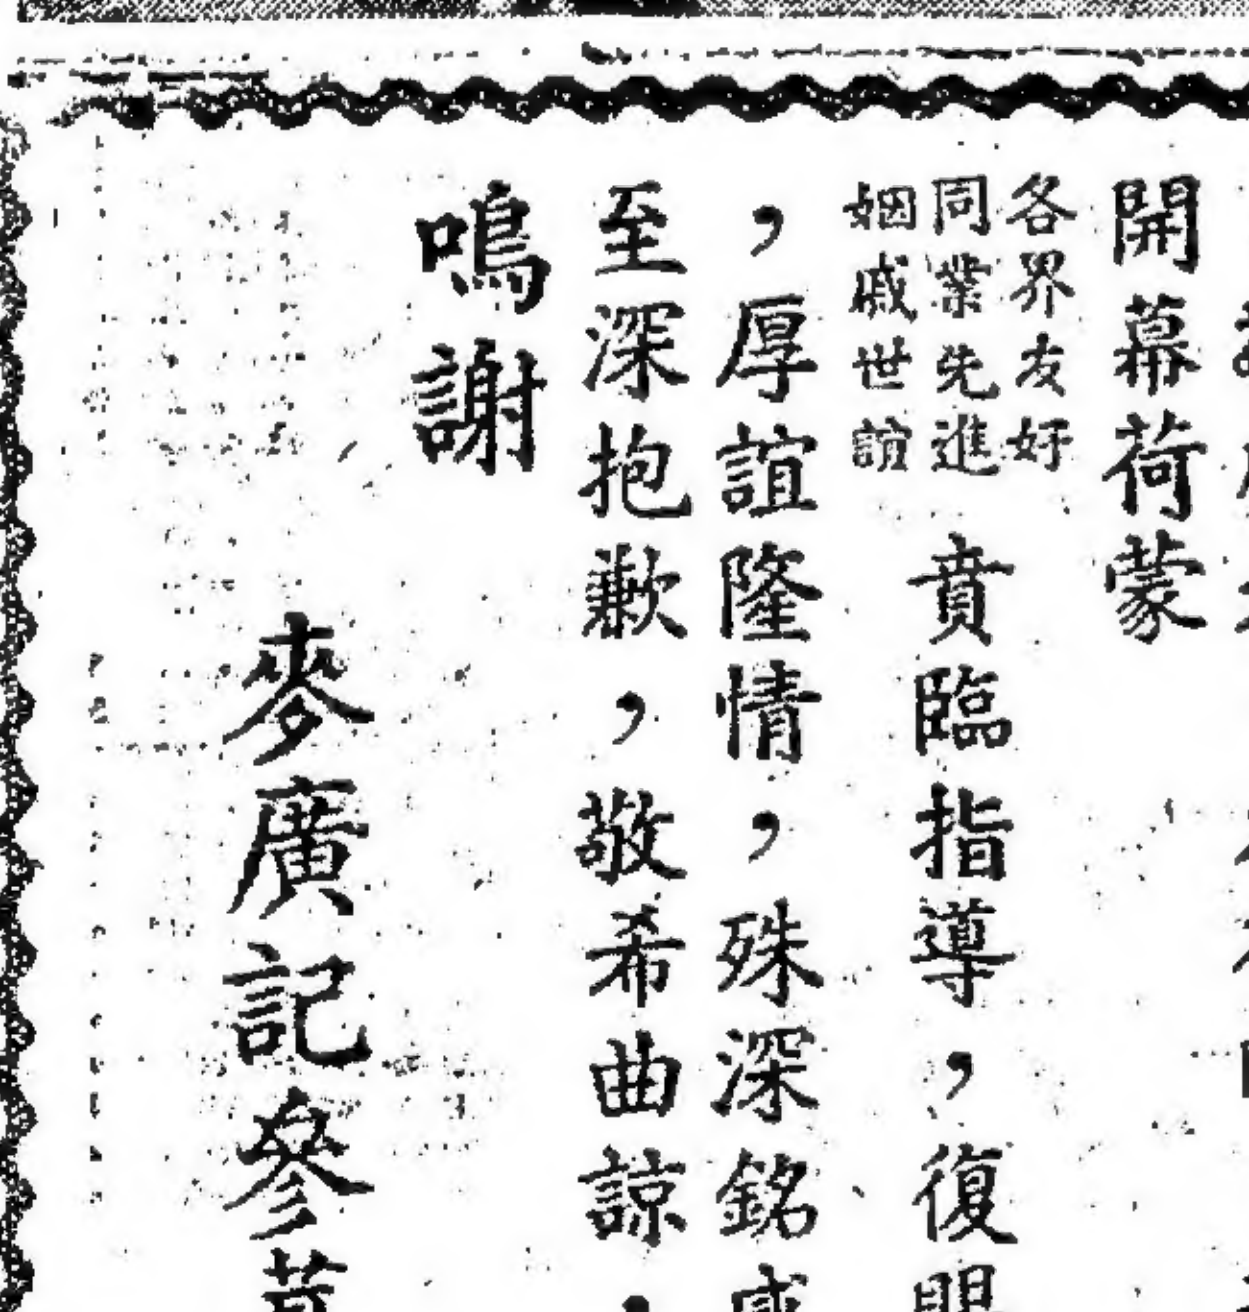 開幕荷蒙
各界友好
同業先進
姻戚世誼
賁臨指導，復
，厚誼隆情，殊深銘
至深抱歉，敬希曲諒，
鳴謝
麥廣記參